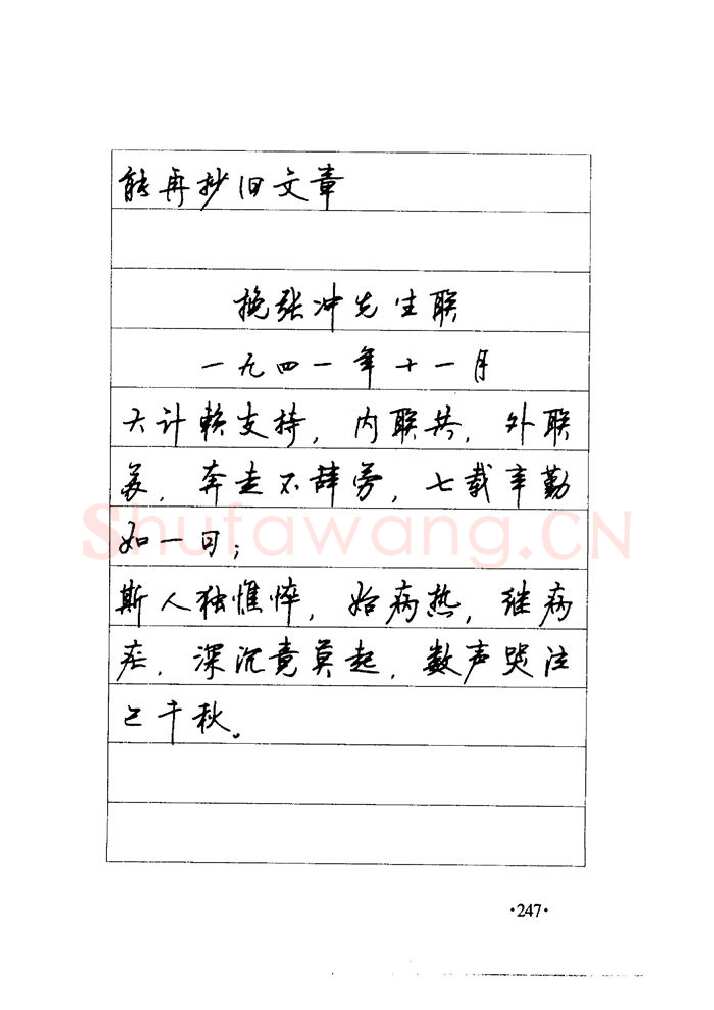 能再抄旧文章
挽张冲先生联
一九四一年十一月
大计赖支持，内联共，外联
苏，奔走不辞劳，七载辛勤
如一日；
斯人独惟悴，始病热，继病
疟，深沉竟莫起，数声哭泣
已千秋。
Shufawang.CN
·247·